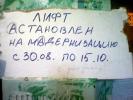 ЛИФТ
ОСТАНОВЛЕН
НА МОДЕРНИЗАЦИЮ
С 30.08. ПО 15.10.